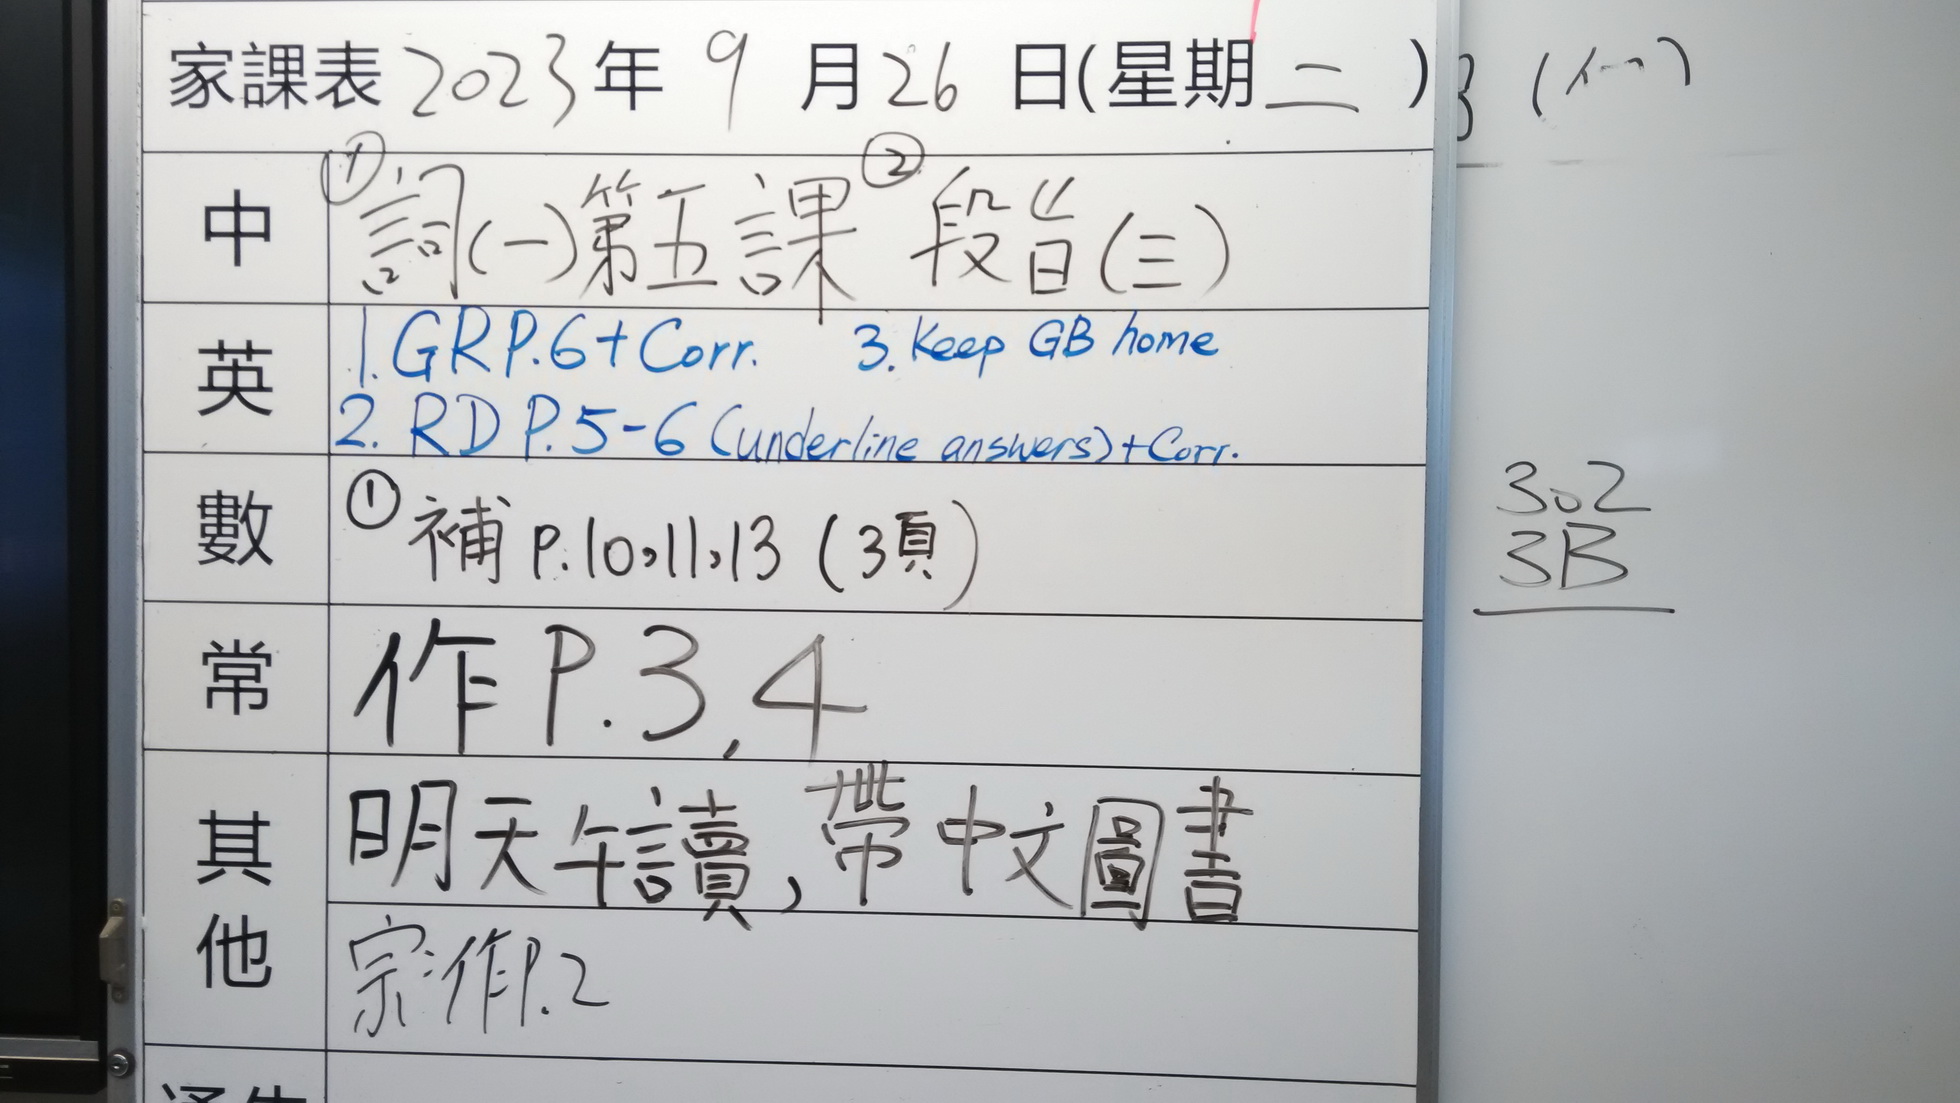 家課表 2023年 9月26日(星期二)
中
① 詞(一)第五課 ② 段旨(三)
英
1. GR P.6 + Corr. 3. Keep GB home
2. RD P.5-6 (underline answers) + Corr.
數
① 補 P.10,11,13 (3頁)
常
作 P.3,4
其他
明天午讀,帶中文圖書
宗:作P.2
302
3B